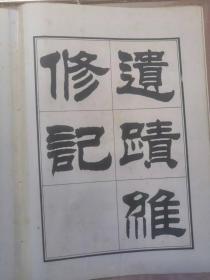 遺蹟維
修記